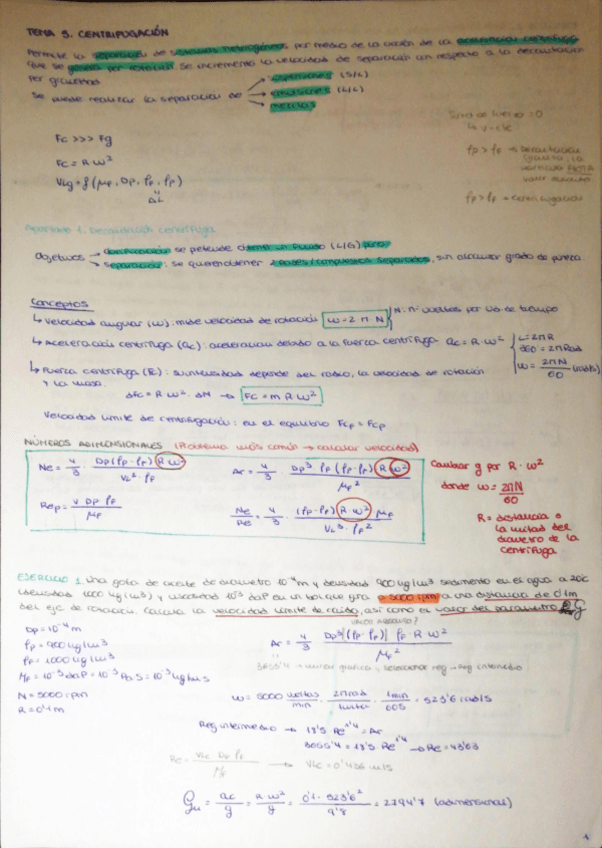 TEMA 5. CENTRIFUGACIÓN
Permite la separación de sistemas heterogéneos por medio de la acción de la aceleración centrífuga
que se genera por rotación. Se incrementa la velocidad de separación con respecto a la decantación
por gravedad
Se puede realizar la separación de → suspensiones (S/L)
→ emulsiones (L/L)
→ mezclas
Fc >>> Fg
Fc = R ω²
ρp > ρf → Decantación
ρp > ρf → Centrifugación
Apartado 1. Decantación centrífuga
Objetivos → clarificación se pretende obtener un fluido (L/G) puro
→ separación: se quieren obtener 2 fases/compuestos separados, sin alcanzar grado de pureza
Conceptos
↳ Velocidad angular (ω): mide velocidad de rotación ω = 2π·N { N: nº vueltas por ud de tiempo
↳ Aceleración centrífuga (ac): aceleración debido a la fuerza centrífuga ac = R·ω² { L = 2πR
360 = 2π Rad
ω = 2πN / 60 (rad/s)
↳ Fuerza centrífuga (Fc): su intensidad depende del radio, la velocidad de rotación
y la masa. ΔFc = R ω² · ΔM → Fc = m R ω²
Velocidad límite de centrifugación: en el equilibrio
NÚMEROS ADIMENSIONALES (Problema más común → calcular velocidad)
Ne = 4/3 · Dp(ρp-ρf) R ω² / VL² · ρf
Ar = 4/3 · Dp³ ρf (ρp-ρf) R ω² / μf²
Rep = v Dp ρf / μf
Ne/Re = 4/3 · (ρp-ρf) R ω² μf / VL³ · ρf²
Cambiar g por R·ω²
donde ω = 2πN / 60
R = distancia o
la mitad del
diámetro de la
centrífuga
EJERCICIO 1. Una gota de aceite de diámetro 10⁻⁴ m y densidad 900 kg/m³ sedimenta en el agua a 20ºC
(densidad 1000 kg/m³) y viscosidad 10⁻³ daP en un bol que gira a 5000 rpm a una distancia de 0'1m
del eje de rotación. Calcula la velocidad límite de caída, así como el valor del parámetro G
Dp = 10⁻⁴ m
ρp = 900 kg/m³
ρf = 1000 kg/m³
μf = 10⁻³ daP = 10⁻³ Pa·s = 10⁻³ kg/m·s
N = 5000 rpm
R = 0'1 m
VALOR ABSOLUTO?
Ar = 4/3 Dp³ |(ρp-ρf)| ρf · R ω² / μf²
3655'4 → mirar gráfica, seleccionar reg → Reg intermedio
ω = 5000 vueltas/min · 2π rad/1 vuelta · 1min/60s = 523'6 rad/s
Reg intermedio → 18'5 Re^1'4 = Ar
3655'4 = 18'5 Re^1'4 → Re = 43'63
Re = VLC Dp ρf / μf → VLC = 0'436 m/s
= ac/g = R ω²/g = 0'1 · 523'6² / 9'8 = 2794'7 (adimensional)
1